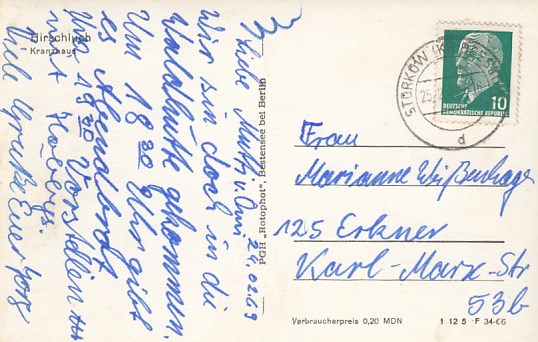 Hirschluch
Kranzhaus
Liebe Mutti u. Omi. 24.02.69
Wir sin doch in die
Waldhütte gekommen.
Um 18 30 Uhr gibt
es Abendbrot
19 30 Vorstellen
mit Hobbys.
Viele Grüße Euer Jörg
PGH „Rotophot", Bestensee bei Berlin
STORKOW (MARK)
25.
d
DEUTSCHE
DEMOKRATISCHE REPUBLIK
10
Frau
Marianne Weißenhage
125 Erkner
Karl-Marx-Str
53b
Verbraucherpreis 0,20 MDN
1 12 5 · F 34-66